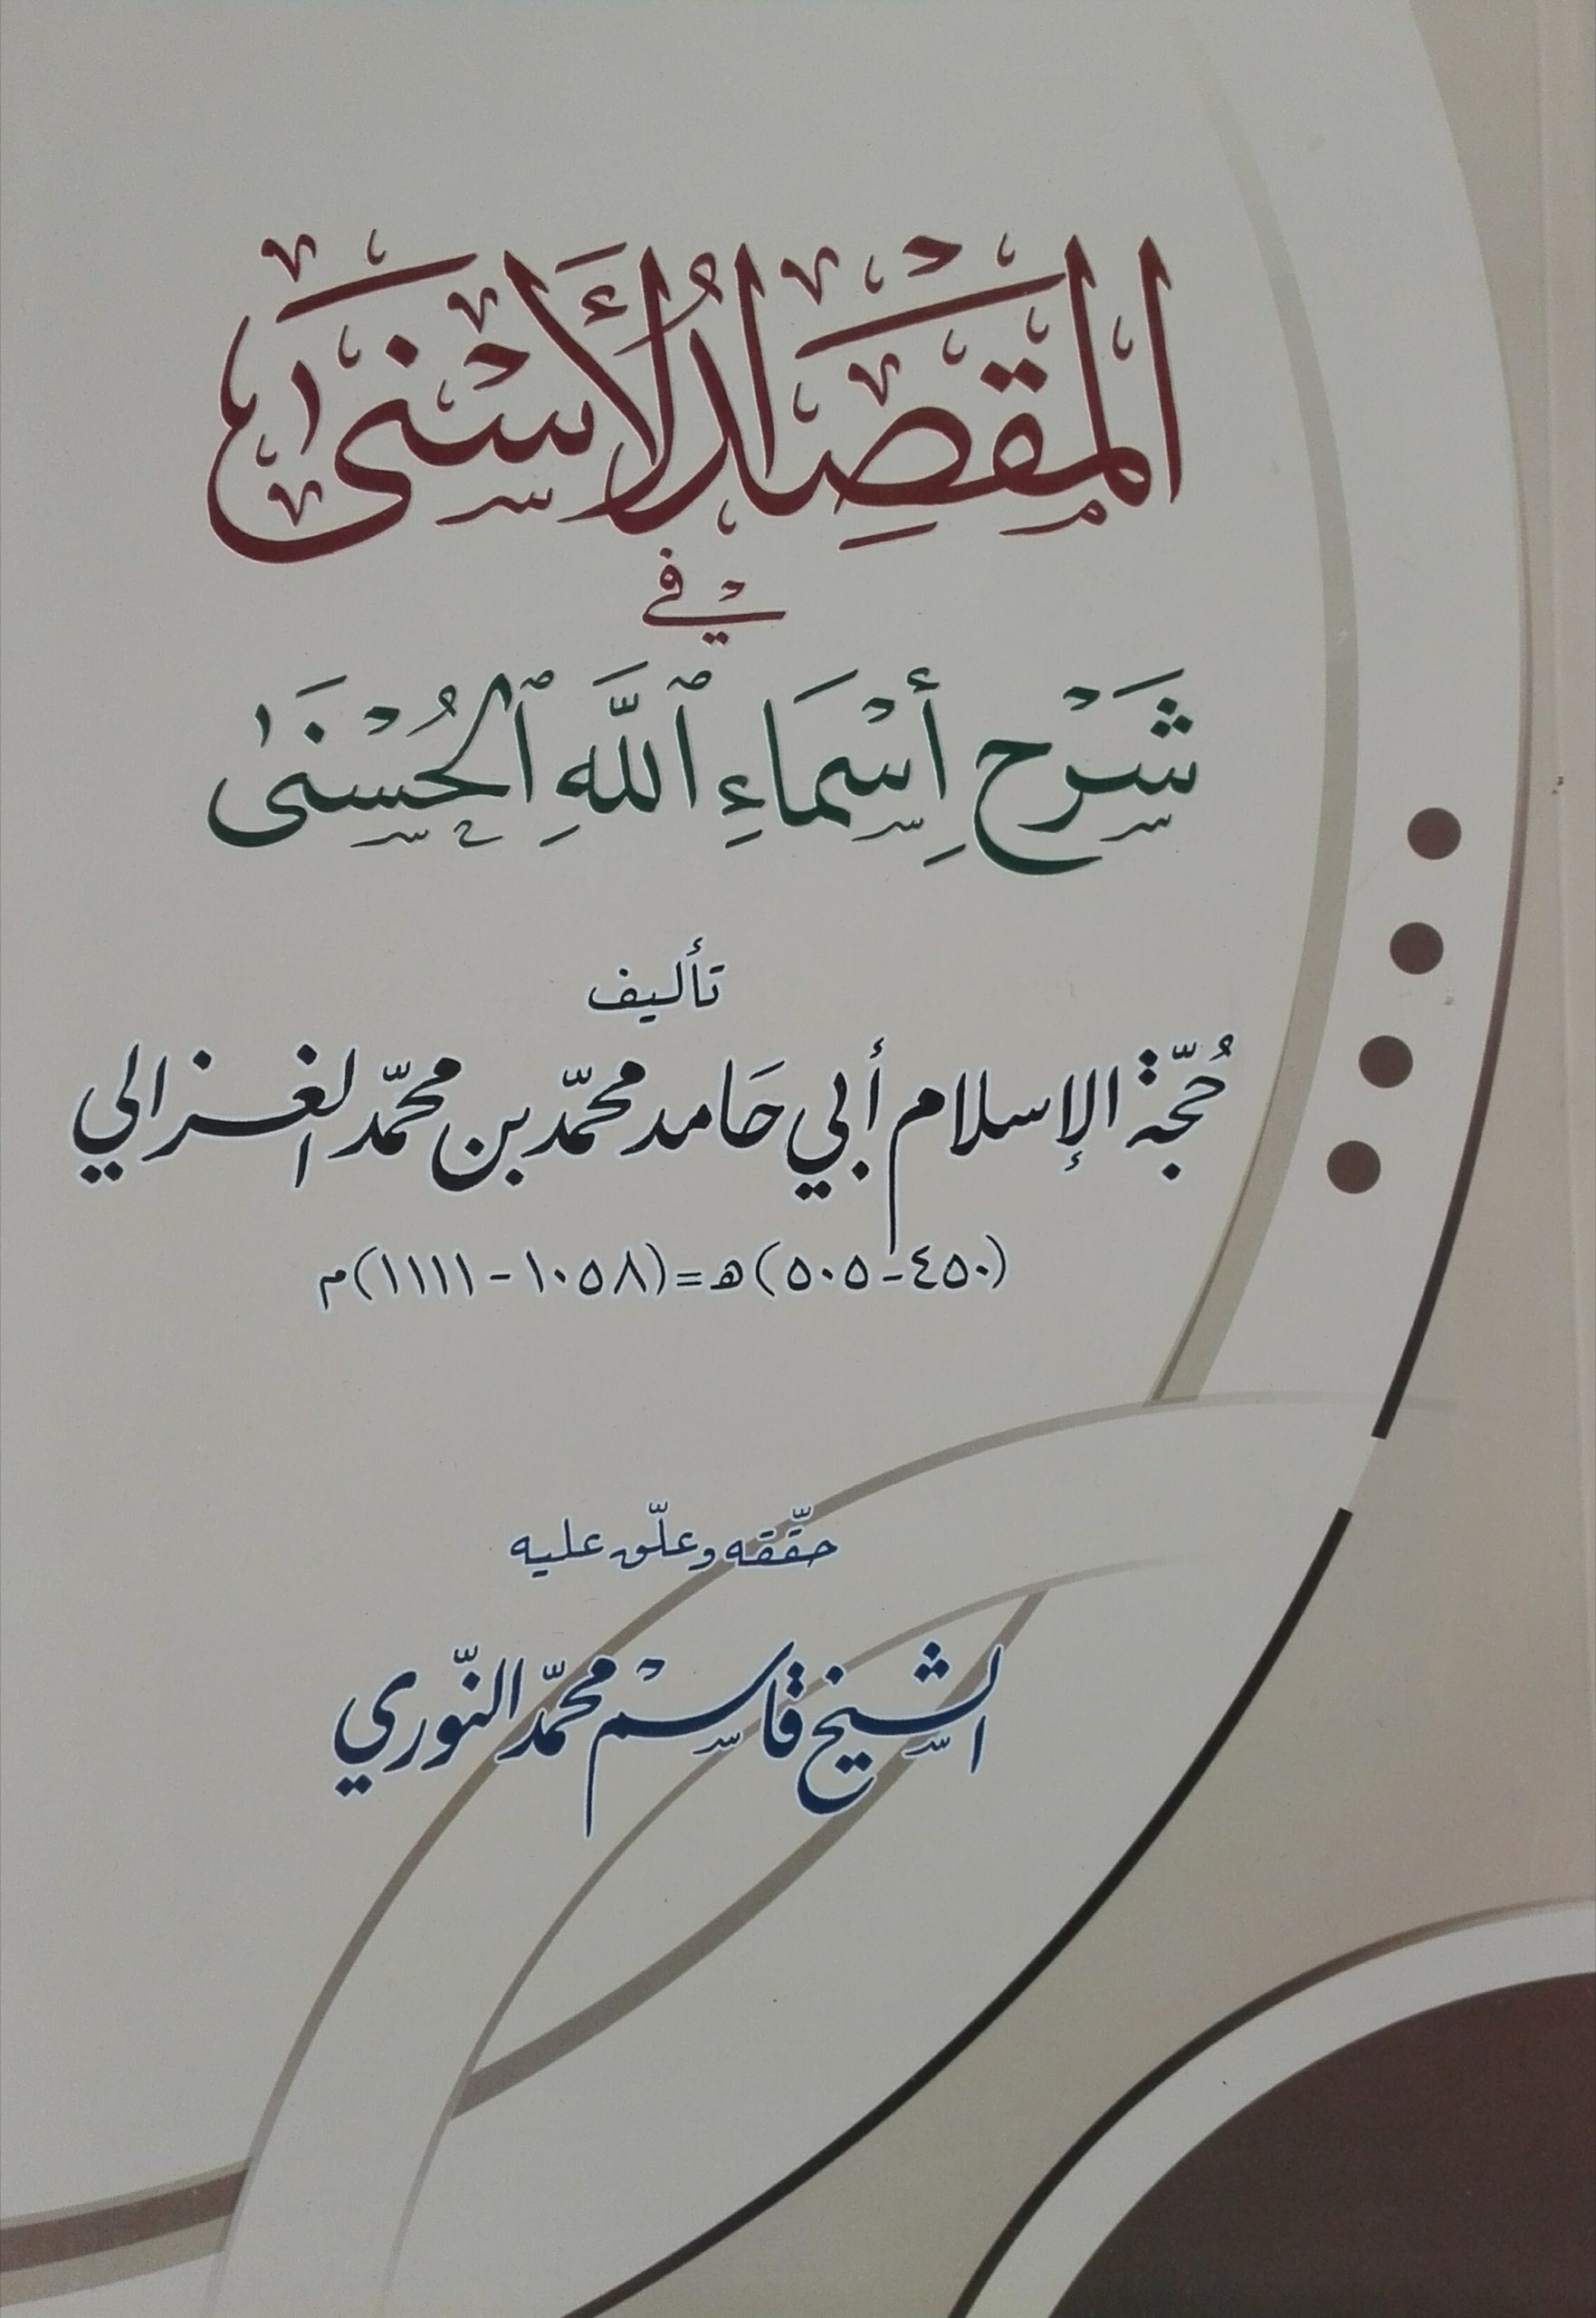 المَقْصِدُ الأَسْنَى
في
شَرْح أَسْمَاءِ ٱللَّهِ ٱلحُسْنَى
تأليف
حُجّة الإسلام أبي حَامد محمّد بن محمّد الغزالي
(٤٥٠-٥٠٥)ه=(١٠٥٨-١١١١)م
حقّقه وعلّق عليه
الشيخ قاسم محمّد النّوري